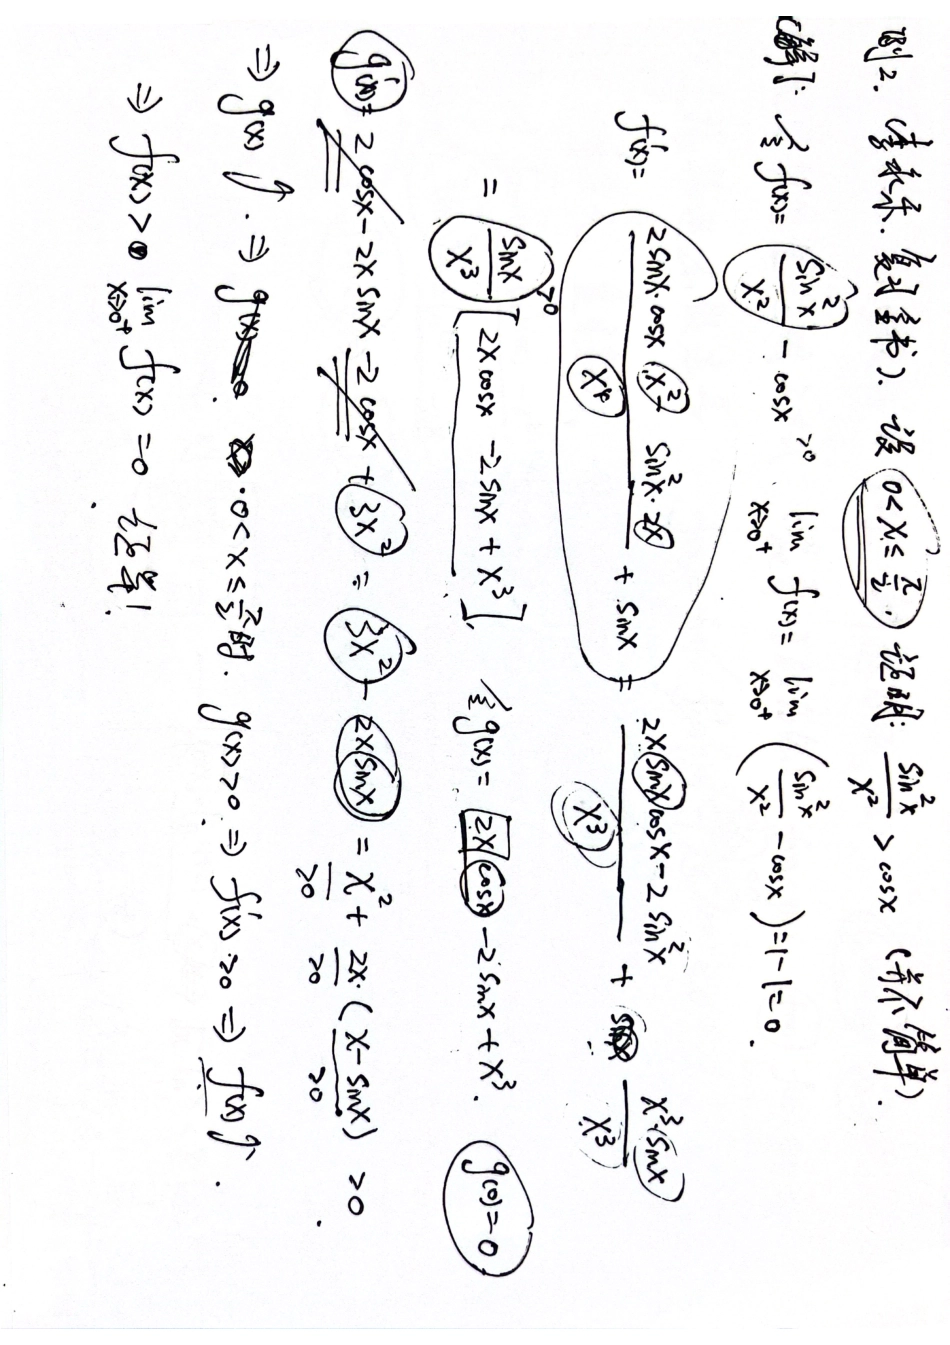 例2. (李永乐. 复习全书). 设 0<x≤π/2. 证明: sin²x/x² > cosx (并不简单).
[解]: 令 f(x)= sin²x/x² - cosx >0 lim x→0⁺ f(x)= lim x→0⁺ (sin²x/x² - cosx)=1-1=0.
f'(x)= (2sinx·cosx·x² - sin²x·2x)/x⁴ + sinx = (2x sinx cosx - 2sin²x)/x³ + x³·sinx/x³
= sinx/x³ >0 [2xcosx - 2sinx + x³]. 令 g(x)= 2x cosx - 2sinx + x³. g(0)=0
g'(x)= 2cosx - 2x sinx - 2cosx + 3x² = 3x² - 2x sinx = x² + 2x·(x-sinx) >0.
>0 >0 >0
⇒ g(x) ↗. ⇒ 0<x≤π/2时. g(x)>0 ⇒ f'(x)>0 ⇒ f(x)↗.
⇒ f(x)> lim x→0⁺ f(x) = 0 结束!